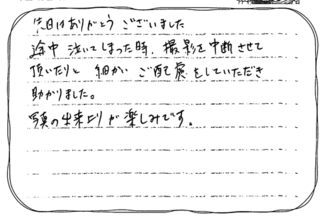 先日はありがとうございました
途中泣いてしまった時、撮影を中断させて
頂いたりし 細かいご配慮をしていただき
助かりました。
写真の出来上りが楽しみです。